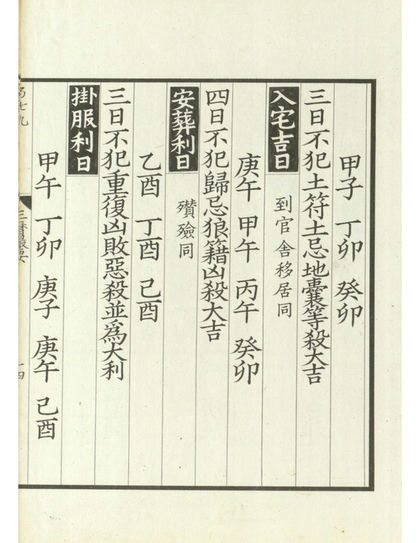 甲子 丁卯 癸卯
三日不犯土符土忌地囊等殺大吉
入宅吉日 到官舍移居同
庚午 甲午 丙午 癸卯
四日不犯歸忌狼籍凶殺大吉
安葬利日 殯殮同
乙酉 丁酉 己酉
三日不犯重復凶敗惡殺並爲大利
掛服利日
甲午 丁卯 庚子 庚午 己酉